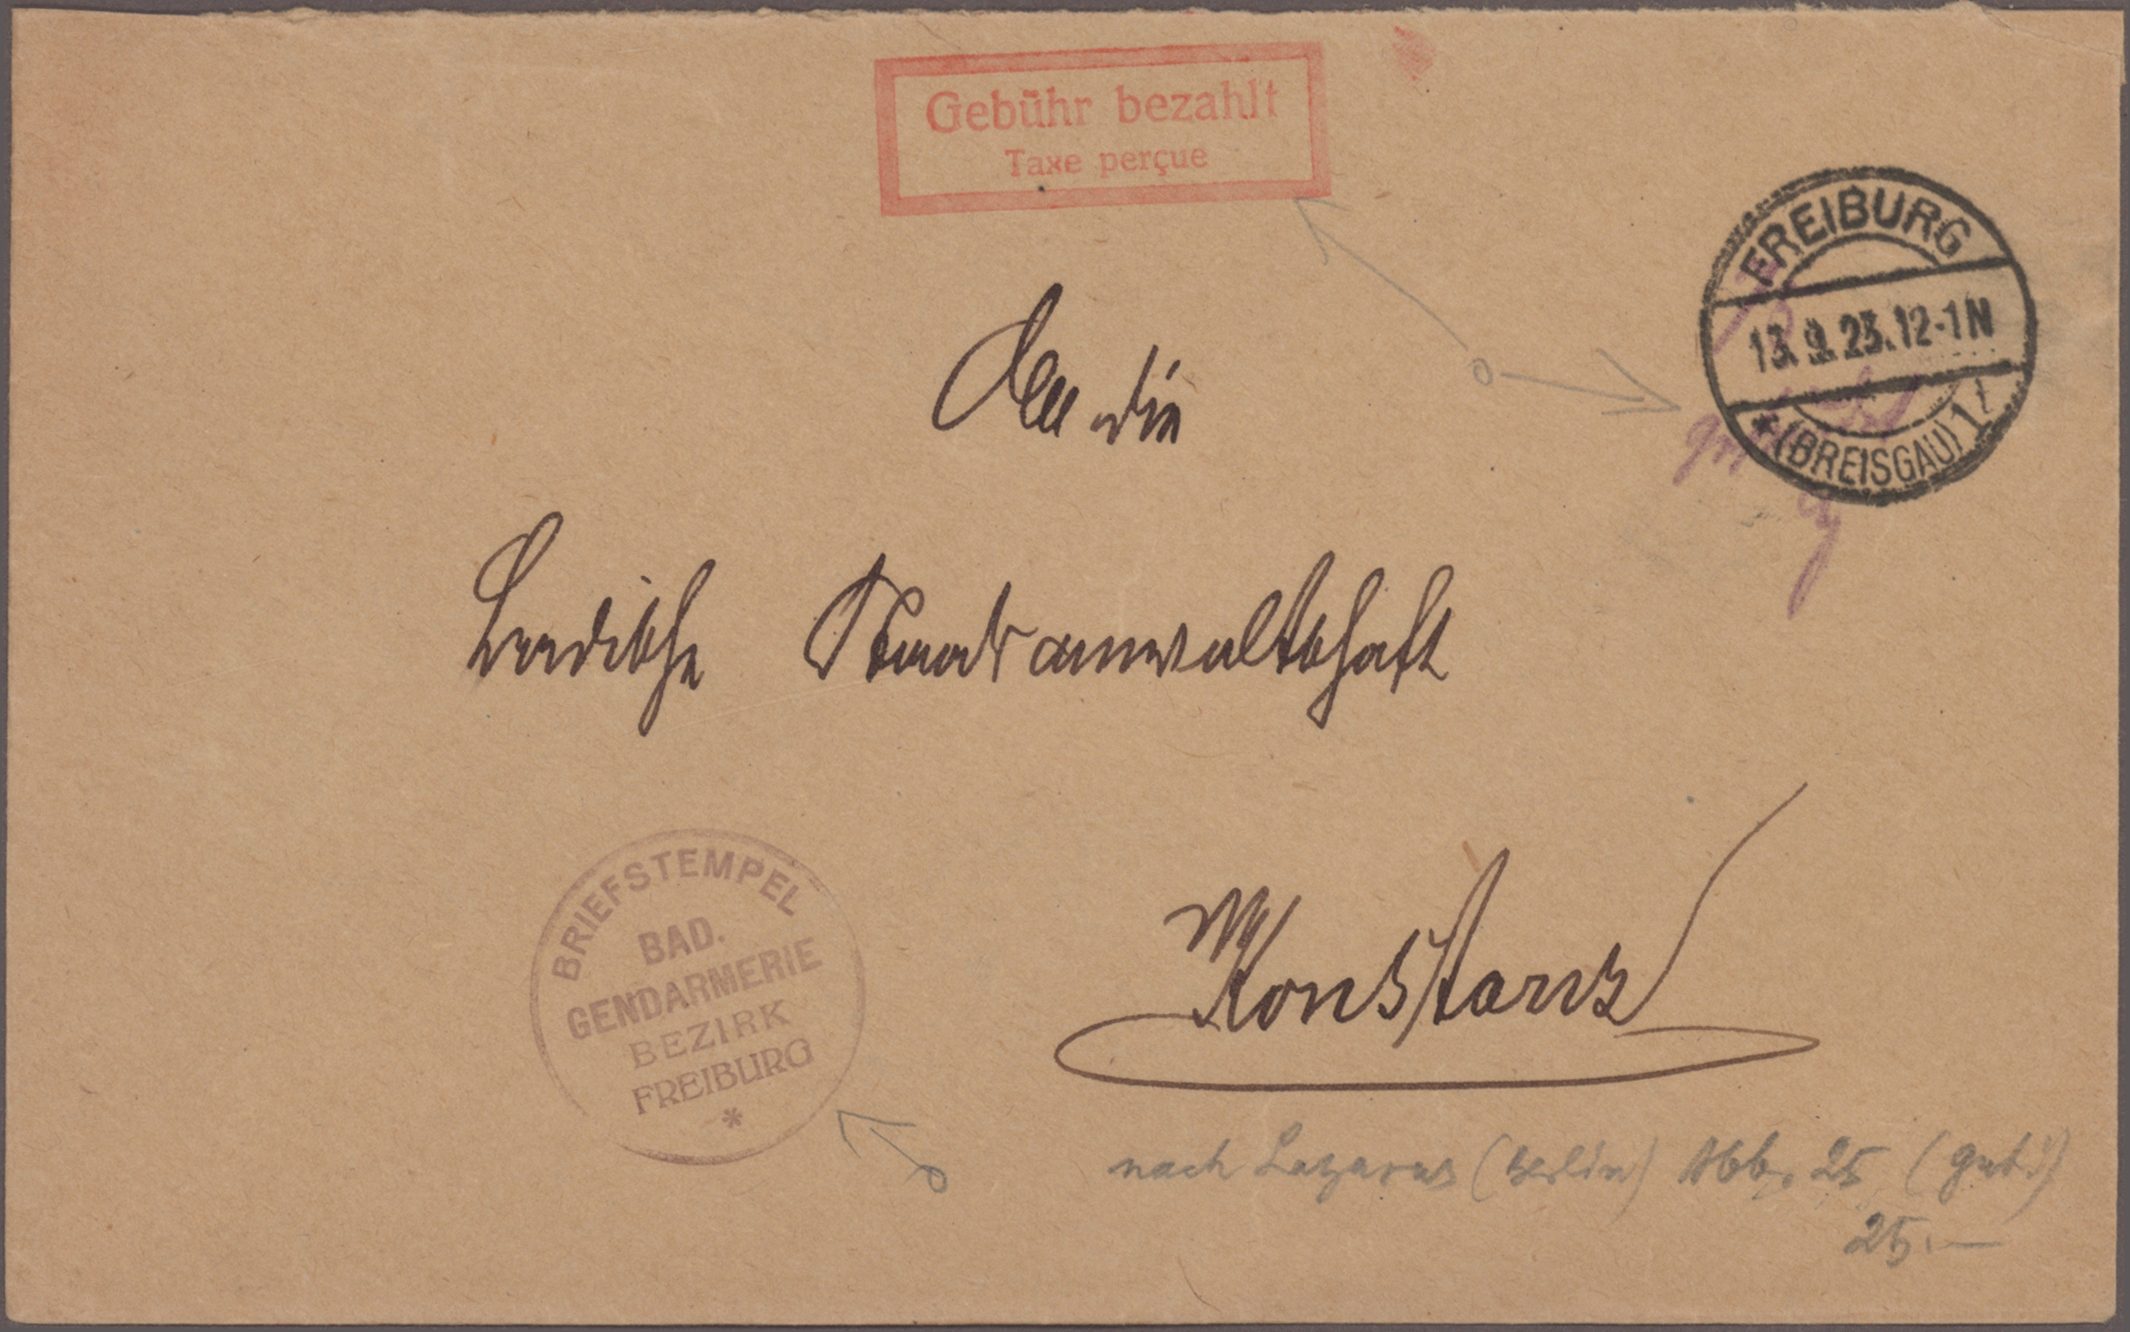 Gebühr bezahlt
Taxe perçue
FREIBURG
13.9.23.12-1N
* (BREISGAU) 1 t
An die
Badische Staatsanwaltschaft
Konstanz
BRIEFSTEMPEL
BAD.
GENDARMERIE
BEZIRK
FREIBURG
*
nach Lazarus (Berlin) Abb. 25 (gut!)
25.—